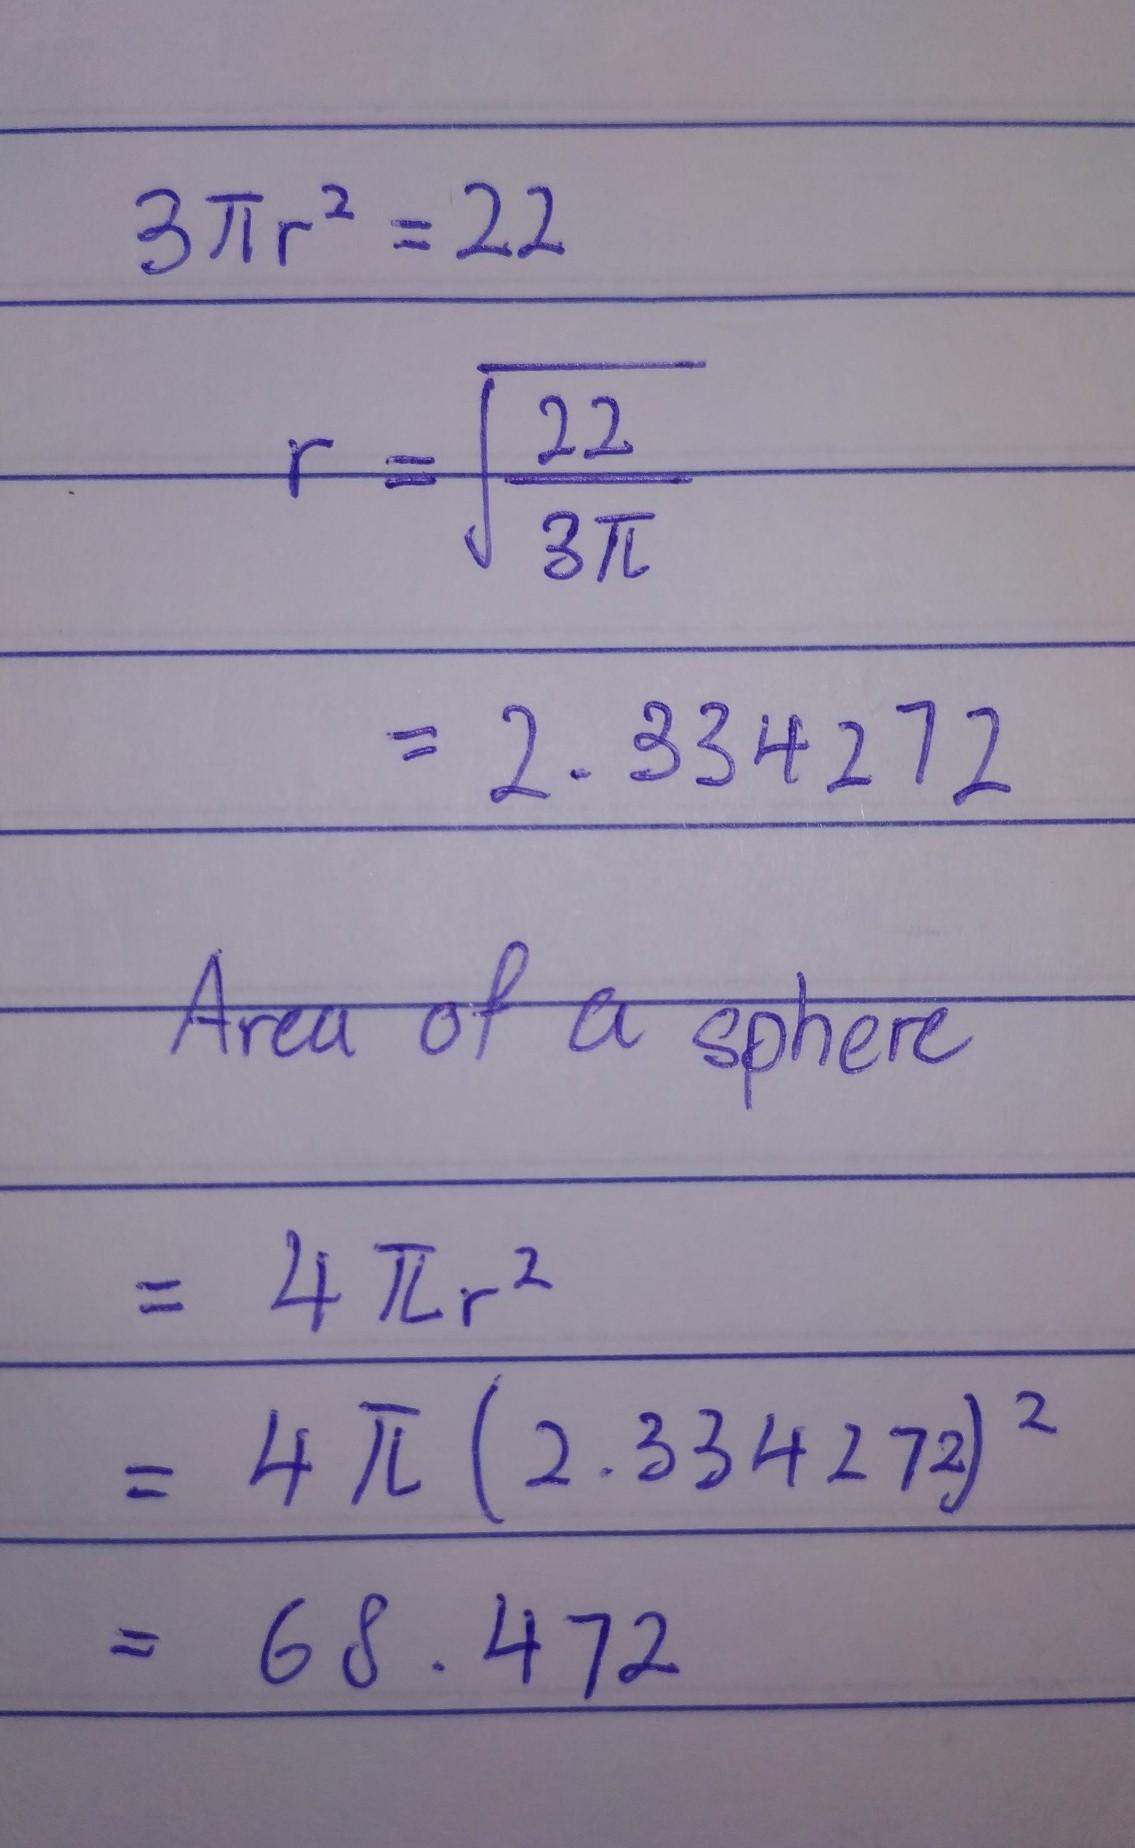 3πr² = 22
r = √(22/3π)
= 2.334272
Area of a sphere
= 4πr²
= 4π(2.334272)²
= 68.472